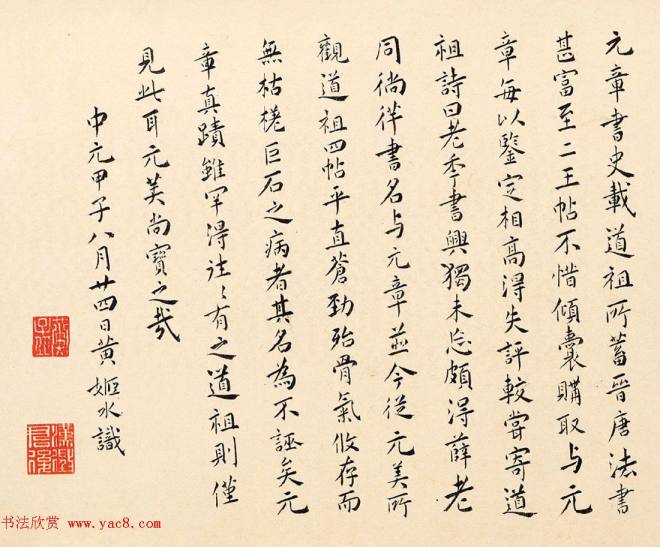 元章書史載道祖所蓄晉唐法書
甚富至二王帖不惜傾囊購取与元
章每以鑒定相高得失評較嘗寄道
祖詩曰老季書興獨未忘頗得薛老
同徜徉書名与元章並今從元美所
觀道祖四帖平直蒼勁殆骨氣攸存而
無枯槎巨石之病者其名為不誣矣元
章真蹟雖罕得往〻有之道祖則僅
見此耳元美尚寶之哉
中元甲子八月廿四日黃姬水識
书法欣赏 www.yac8.com